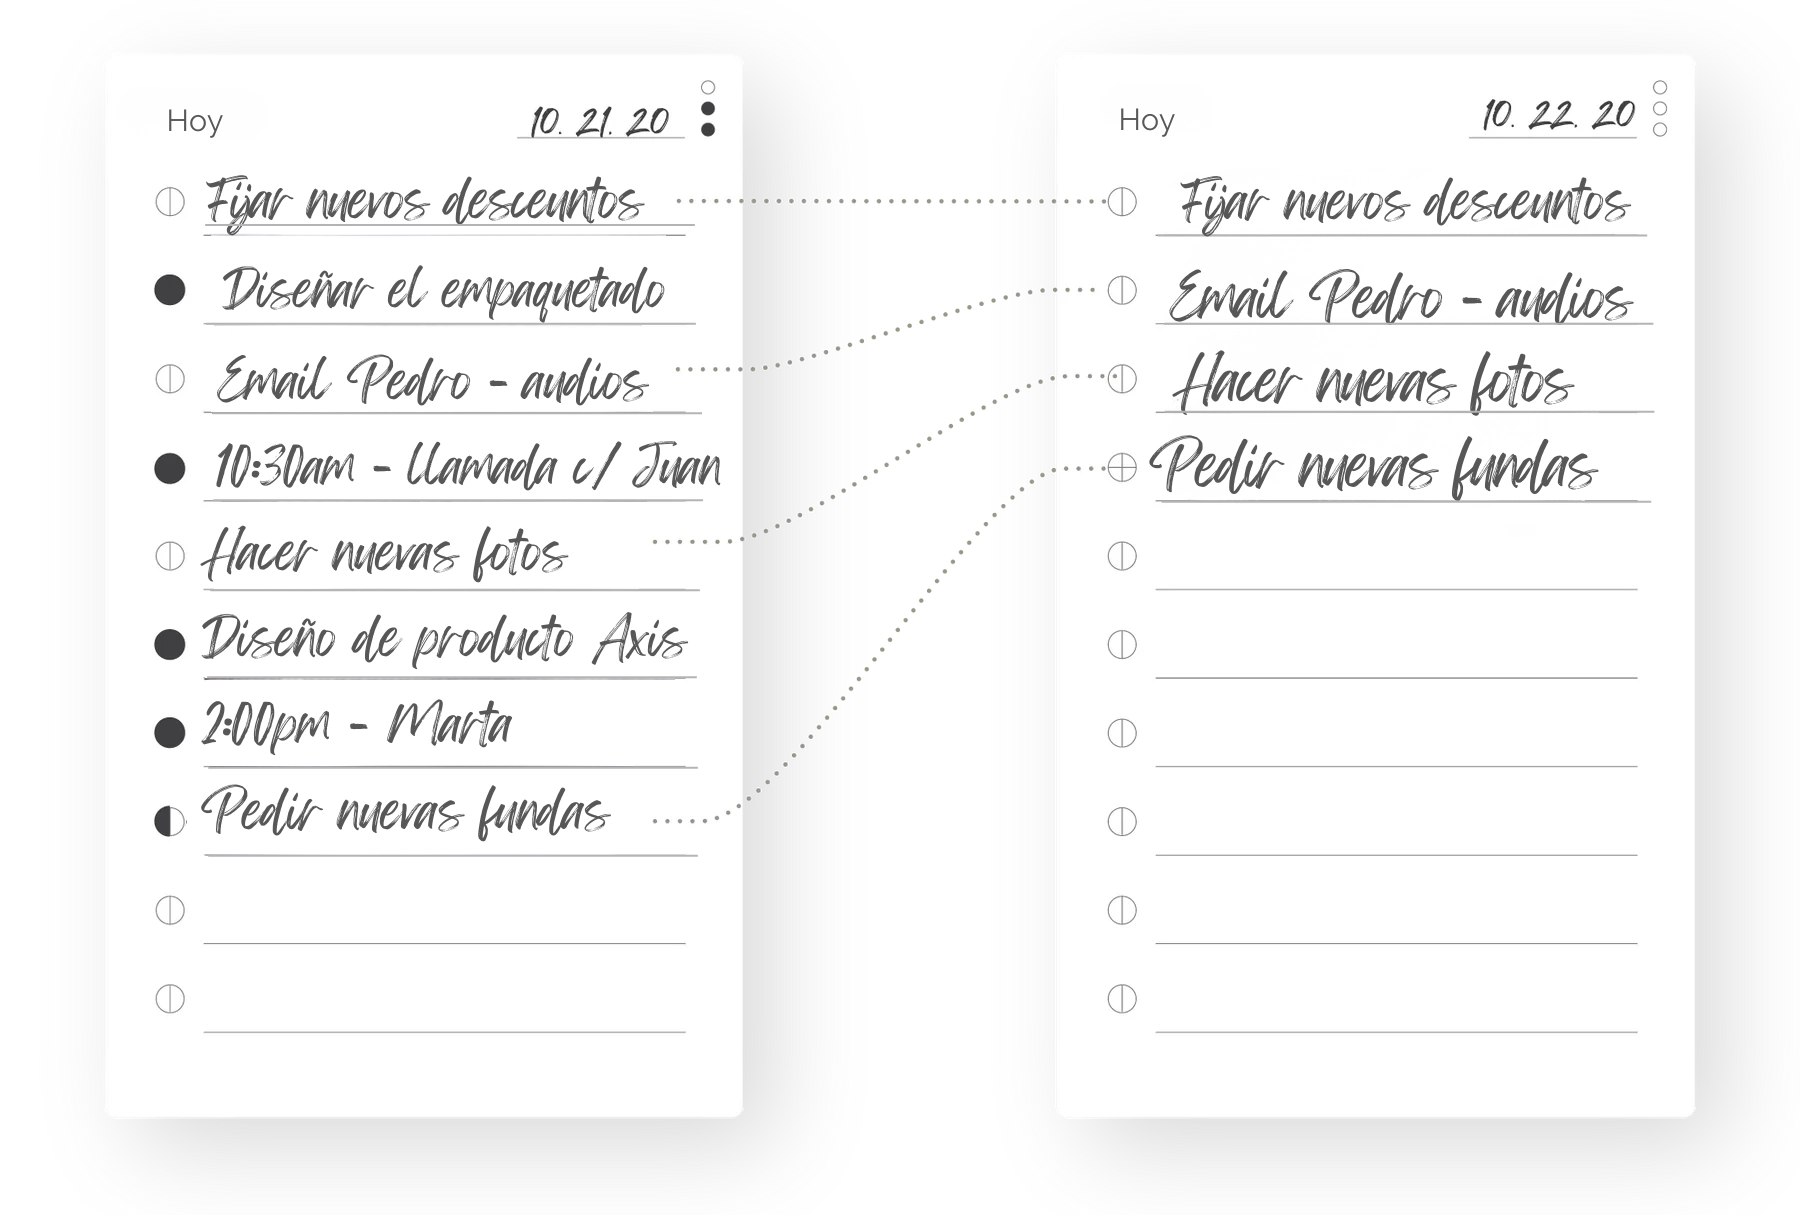 Hoy
10. 21. 20
Fijar nuevos desceuntos
Diseñar el empaquetado
Email Pedro - audios
10:30am - llamada c/ Juan
Hacer nuevas fotos
Diseño de producto Axis
2:00pm - Marta
Pedir nuevas fundas
Hoy
10. 22. 20
Fijar nuevos desceuntos
Email Pedro - audios
Hacer nuevas fotos
Pedir nuevas fundas